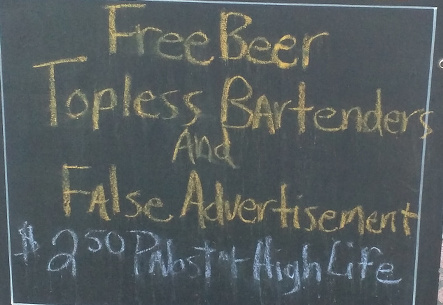 Free Beer
Topless Bartenders
And
False Advertisement
$2 50 Pabst + High Life